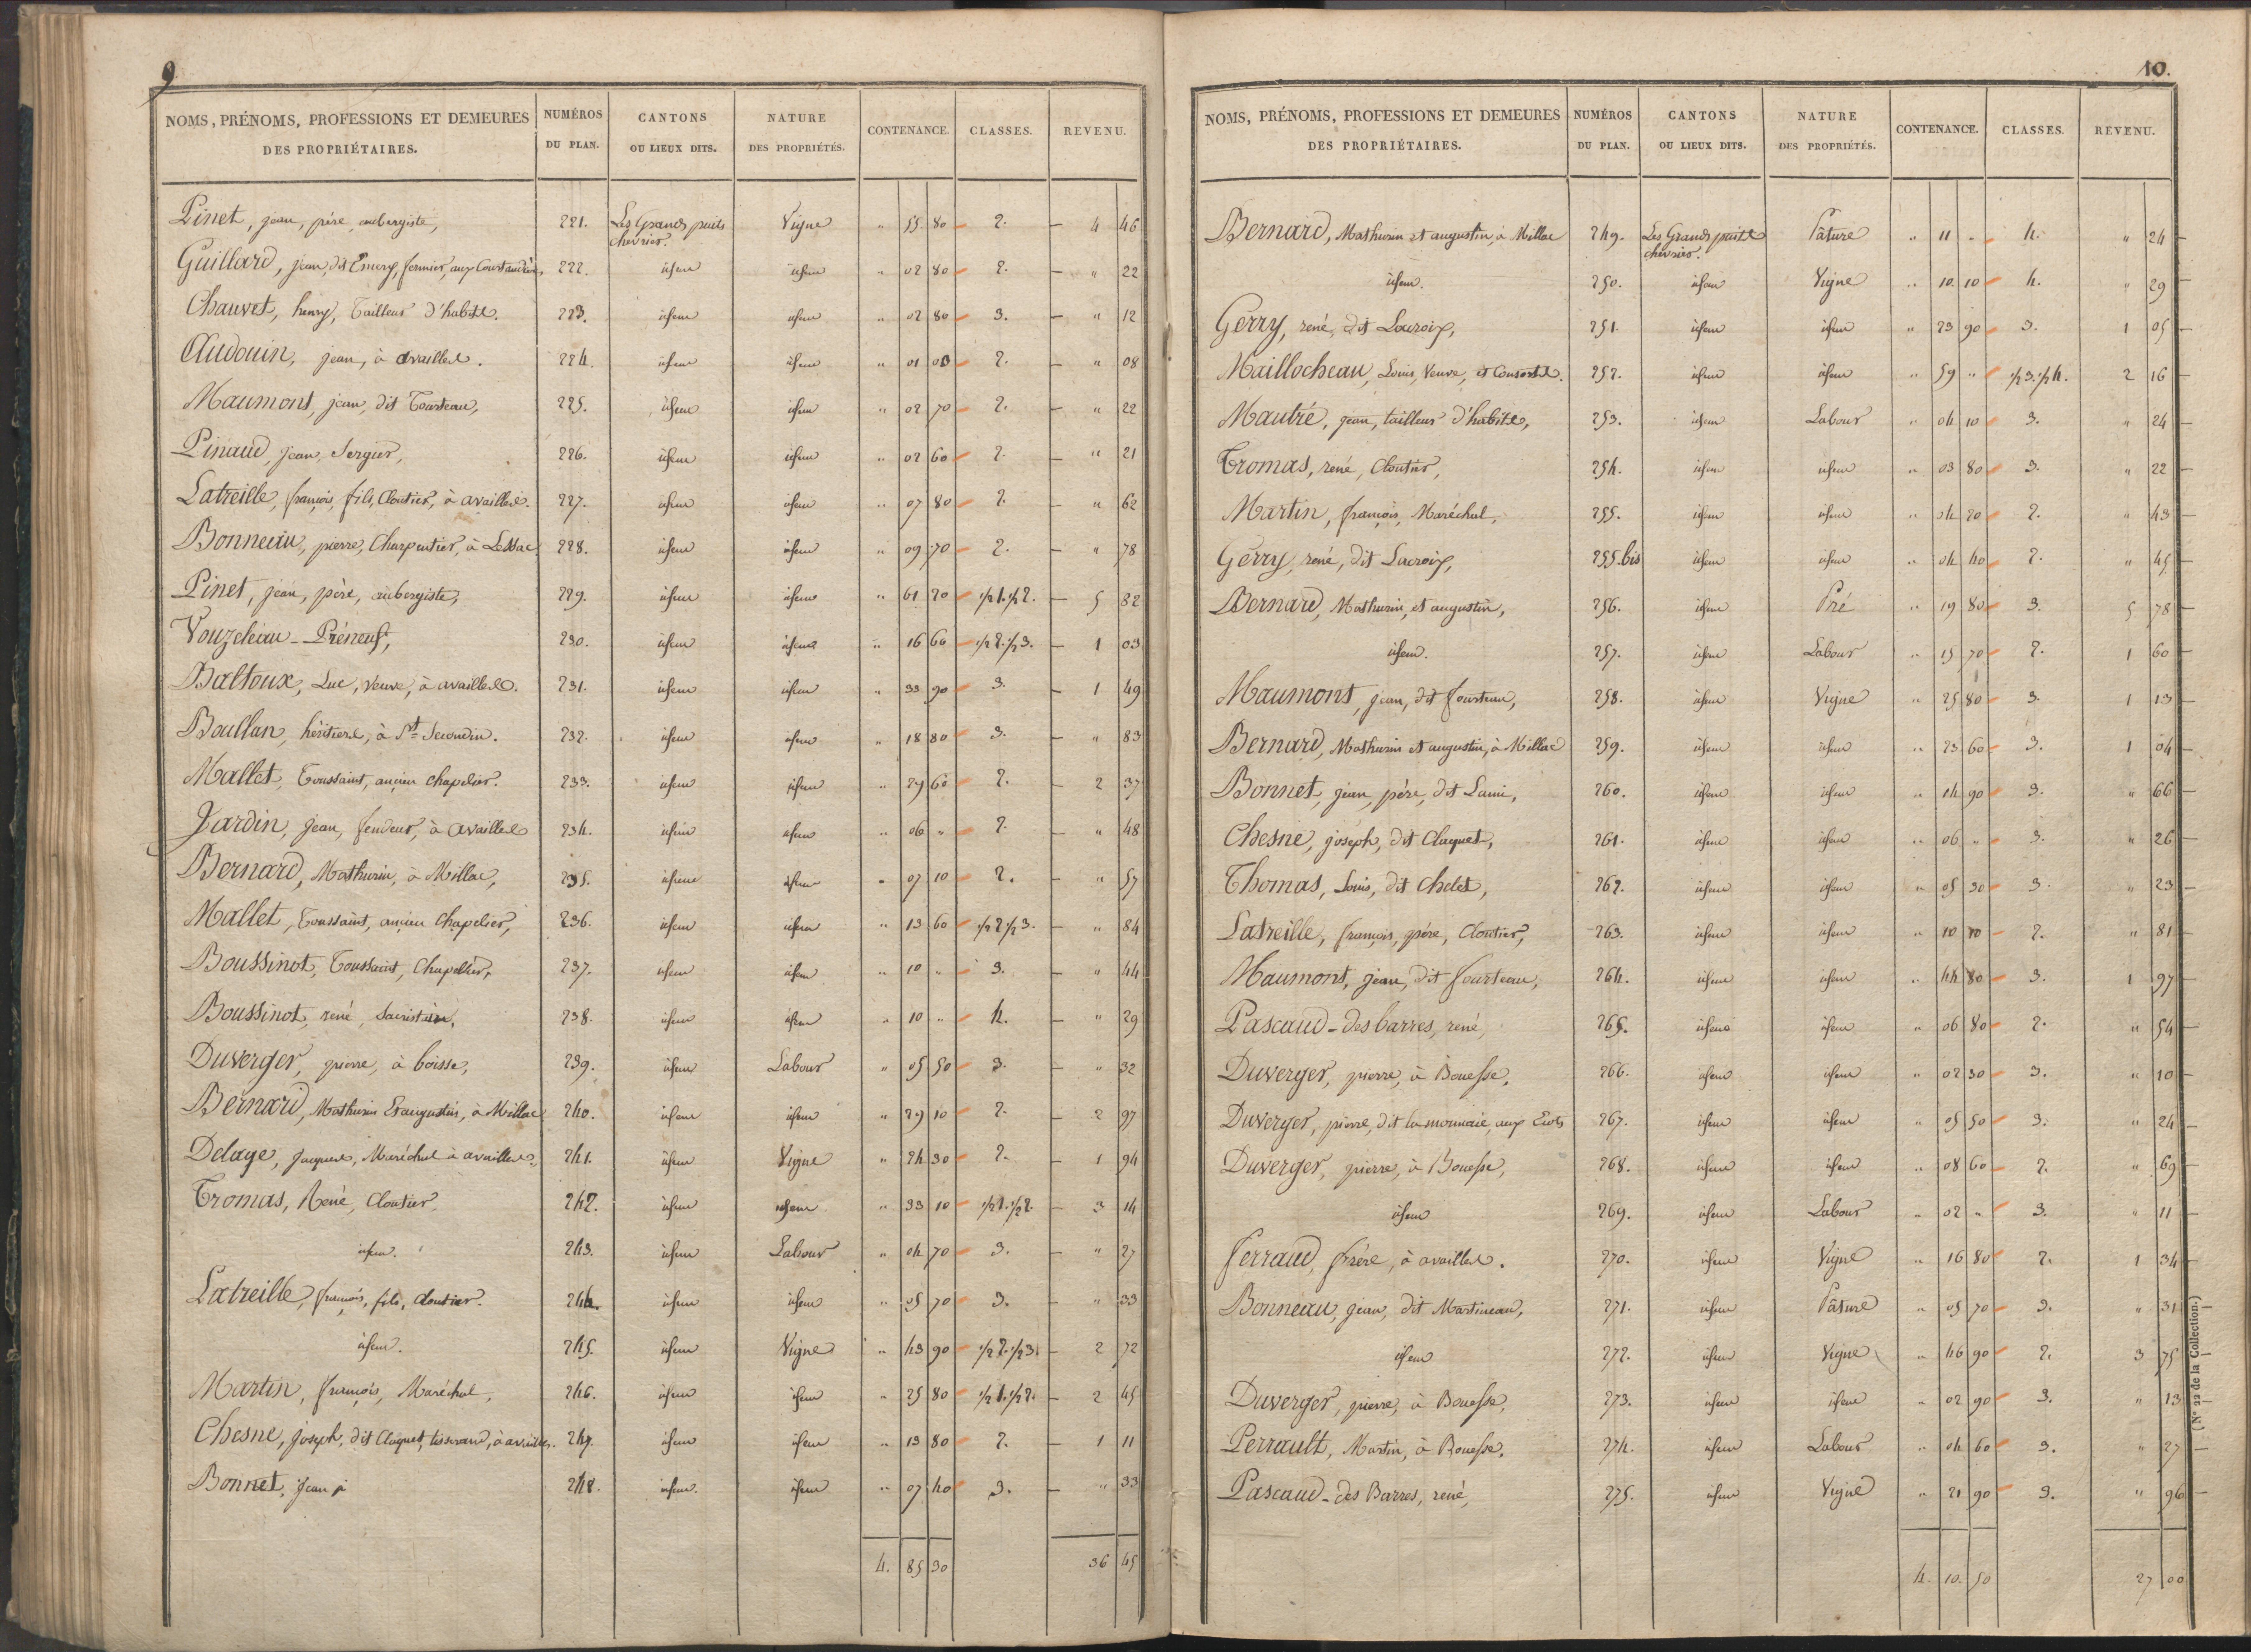 9
NOMS, PRÉNOMS, PROFESSIONS ET DEMEURES DES PROPRIÉTAIRES. NUMÉROS DU PLAN. CANTONS OU LIEUX DITS. NATURE DES PROPRIÉTÉS. CONTENANCE. CLASSES. REVENU.
Pinet, jean, père, aubergiste, 221. Les Grands puits chevrier. Vigne " 55 80 2. 4 46
Guillard, jean, dit Emery, fermier, aux 222. idem idem " 02 80 2. " 22
Chauvet, henry, Tailleur d'habits. 223. idem idem " 02 80 3. " 12
Audouin, jean, à availles. 224. idem idem " 01 00 2. " 08
Maumont, jean, dit Tourteau, 225. idem idem " 02 70 2. " 22
Pinaud, jean, Sergier, 226. idem idem " 02 60 2. " 21
Latreille, françois, fils, Cloutier, à availles. 227. idem idem " 07 80 2. " 62
Bonneau, pierre, Charpentier, à Lessac 228. idem idem " 09 70 2. " 78
Pinet, jean, père, aubergiste, 229. idem idem " 61 20 1/2 1. 1/2 2. 5 82
Vouzeleau-Préneuf, 230. idem idem " 16 60 1/2 2. 1/2 3. 1 03
Baltoux, Luc, veuve, à availles. 231. idem idem " 33 90 3. 1 49
Boullan, héritiers, à St Secondin. 232. idem idem " 18 80 3. " 83
Mallet, Toussaint, ancien chapelier. 233. idem idem " 29 60 2. 2 37
Jardin, jean, fendeur, à availles 234. idem idem " 06 " 2. " 48
Bernard, Mathurin, à Millac, 235. idem idem " 07 10 2. " 57
Mallet, Toussaint, ancien chapelier, 236. idem idem " 13 60 1/2 2 1/2 3. " 84
Boussinot, Toussaint, Chapelier, 237. idem idem " 10 " 3. " 44
Boussinot, rené, Sacristain, 238. idem idem " 10 " 4. " 29
Duverger, pierre, à boisse, 239. idem Labour " 05 50 3. " 32
Bernard, Mathurin Et augustin, à Millac 240. idem idem " 29 10 2. 2 97
Delage, jacques, Maréchal à availles, 241. idem Vigne " 24 30 2. 1 94
Tromas, René, Cloutier. 242. idem idem " 33 10 1/2 1. 1/2 2. 3 14
idem. 243. idem Labour " 04 70 3. " 27
Latreille, françois, fils, cloutier. 244. idem idem " 05 70 3. " 33
idem. 245. idem Vigne " 43 90 1/2 2. 1/2 3. 2 72
Martin, françois, Maréchal, 246. idem idem " 25 80 1/2 1. 1/2 2. 2 45
Chesne, joseph, dit Claquet, tisserand, à availles. 247. idem idem " 13 80 2. 1 11
Bonnet, Jean p 248. idem. idem " 07 40 3. " 33
4. 85 30 36 45
10.
NOMS, PRÉNOMS, PROFESSIONS ET DEMEURES DES PROPRIÉTAIRES. NUMÉROS DU PLAN. CANTONS OU LIEUX DITS. NATURE DES PROPRIÉTÉS. CONTENANCE. CLASSES. REVENU.
Bernard, Mathurin et augustin, à Millac 249. Les Grands puits chevrier. Pâture " 11 " 4. " 24
idem. 250. idem Vigne " 10 10 4. " 29
Gerry, rené, dit Lacroix, 251. idem idem " 23 90 3. 1 05
Maillocheau, Louis, Veuve, et Consorts. 252. idem idem " 59 " 1/2 3. 1/2 4. 2 16
Mautré, jean, tailleur d'habits, 253. idem Labour " 04 10 3. " 24
Tromas, rené, Cloutier, 254. idem idem " 03 80 3. " 22
Martin, françois, Maréchal, 255. idem idem " 04 20 2. " 43
Gerry, rené, dit Lacroix, 255.bis idem idem " 04 40 2. " 45
Bernard, Mathurin, et augustin, 256. idem Pré " 19 80 3. 5 78
idem. 257. idem Labour " 15 70 2. 1 60
Maumont, jean, dit fourteau, 258. idem Vigne " 25 80 3. 1 13
Bernard, Mathurin et augustin, à Millac 259. idem idem " 23 60 3. 1 04
Bonnet, jean, père, dit Lami, 260. idem idem " 14 90 3. " 66
Chesne, joseph, dit Claquet, 261. idem idem " 06 " 3. " 26
Thomas, Louis, dit Chelet, 262. idem idem " 05 30 3. " 23
Latreille, françois, père, Cloutier, 263. idem idem " 10 10 2. " 81
Maumont, jean, dit fourteau, 264. idem idem " 44 80 3. 1 97
Pascaud-des barres, rené, 265. idem idem " 06 80 2. " 54
Duverger, pierre, à Bouesse, 266. idem idem " 02 30 3. " 10
Duverger, pierre, dit la monnaie, aux 267. idem idem " 05 50 3. " 24
Duverger, pierre, à Bouesse, 268. idem idem " 08 60 2. " 69
idem 269. idem Labour " 02 " 3. " 11
ferraud, frère, à availles. 270. idem Vigne " 16 80 2. 1 34
Bonneau, jean, dit Martineau, 271. idem Pâture " 05 70 3. " 31
idem 272. idem Vigne " 46 90 2. 3 75
Duverger, pierre, à Bouesse, 273. idem idem " 02 90 3. " 13
Perrault, Martin, à Bouesse, 274. idem Labour " 04 60 3. " 27
Pascaud-des Barres, rené, 275. idem Vigne " 21 90 3. " 96
4. 10. 50 27 00
(N° 22 de la Collection.)